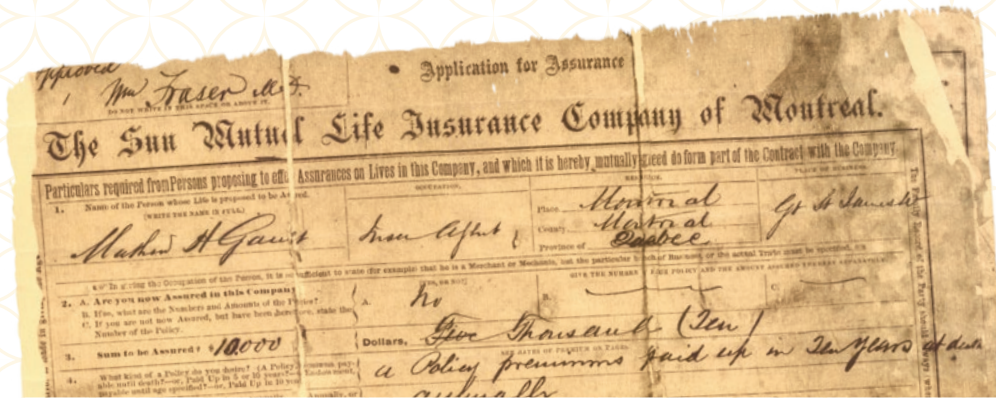 Approved
Wm Fraser M.D.
DO NOT WRITE IN THIS SPACE OR ABOVE IT.
Application for Assurance
The Sun Mutual Life Insurance Company of Montreal.
Particulars required from Persons proposing to effe Assurances on Lives in this Company, and which it is hereby mutually greed do form part of the Contract with the Company
1. Name of the Person whose Life is proposed to be As red.
(WRITE THE NAME IN FULL)
OCCUPATION,
RESIDENCE,
PLACE OF BUSINESS.
Mathew H Gault
Place Montreal
County Montreal
Province of Quebec
Gt St James St
In giving the Occupation of the Person, it is sufficient to state (for example) that he is a Merchant or Mechanic, but the particular of Business, or the actual Trade must be
2. A. Are you now Assured in this Company
B. If so, what are the Numbers and Amounts of the Policies?
C. If you are not now Assured, but have been state the
Number of the Policy.
(YES, OR NO)
A. No
B.
C.
GIVE THE NUMBER POLICY AND THE AMOUNT ASSURED
3. Sum to be Assured? $10.000
Dollars, Five Thousand (Ten)
4. What kind of a Policy do you desire? (A Policy
able until death?—or, Paid Up in 5 or 10 years?—
payable until age specified?—or, Paid Up in 10
a Policy premiums paid up in Ten Years at death